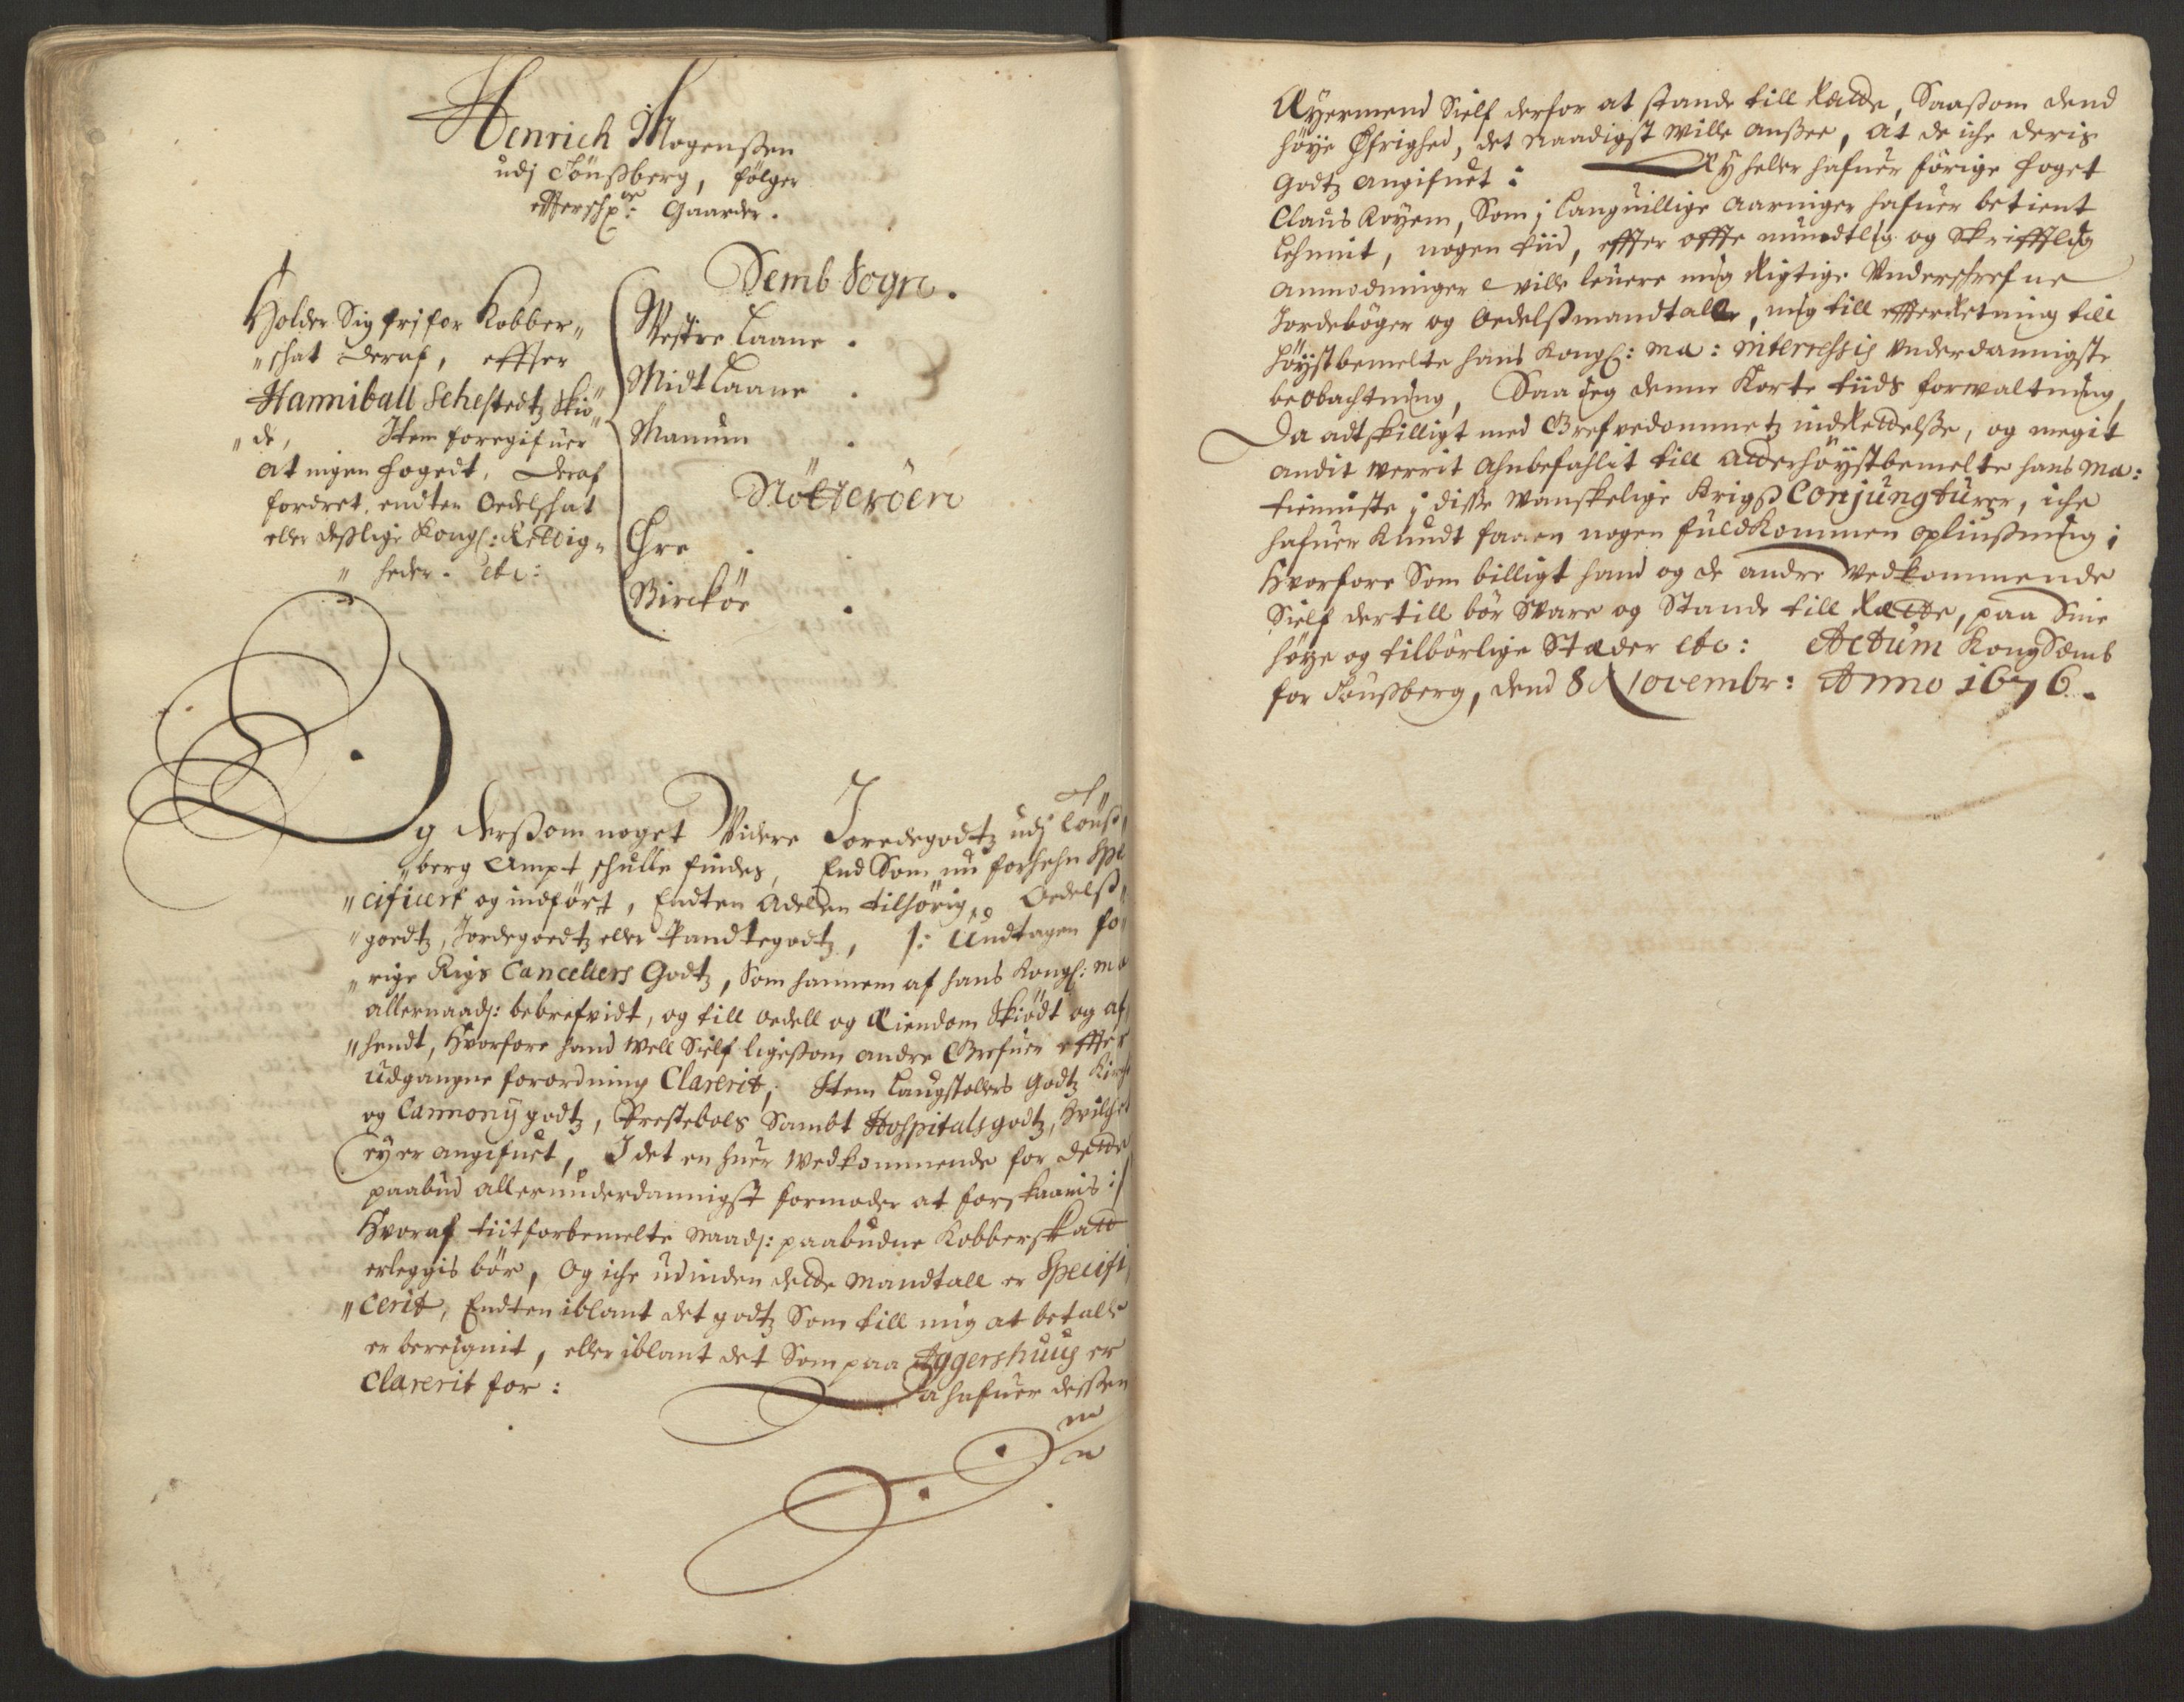 Henrich Mogenßen
udj Tönßberg, følger
effterschr: Gaarder.
Semb Sogn.
Holder Sig frj for Kobber„
„schat deraf, effter
Hanniball Sehestedtz Skiö„
„de, Item foregifuer
at ingen fogedt, deraf
fordret, endten Oedelschat
eller deßlige Kongl: Rettig„
„heder. etc:
Westre Laane.
Midt Laane.
Manum.
Nötteröen
Øre.
Birckör.
Og derßom noget Videre Joredegodtz udj Tönß„
„berg Ampt schulle findes, End Som nu forhehn Spe
„cificert og indført, Endten Adelen tilhörig, Oedelß„
„goedtz, Jordegoedtz eller Pandtegodtz, /: Undtagen fo„
„rige Rigs Cancellers Godtz, Som hannem af hans Kongl: Ma
allernaadj: bebrefvidt, og till oedell og Eiendom Skiödt og af„
„hendt, Hvorfore hand Well Sielf ligeßom andre Grefuer effter
udgangne forordning Clarerit, Item Laugstolers Godtz Kirche
og Cannonij godtz, Prestebols Sambt Hospitals godtz, Hvilchet
ey er angifuet, I det en huer Wedkommende for dette
paabud allerunderdannigst formoder at forskaanis :/
Hvoraf tiitforbemelte Naadj: paabudne Kobberskatt
erleggis bör, Og iche udinden dette Mandtall er Specifi„
„cerit, Endten iblant det godtz Som till mig at betalle
er bereignit, eller iblant det Som paa Aggershuus er
Clarerit for: Da hafuer dessen
Eyermend Sielf derfor at stande till Rætte, Saaßom dend
höye Øfrighed, det Naadigst Wille anßee, at de iche deris
Godtz angifuet: Ey heller hafuer förige foget
Claus Röyem, Som i languillige Aaringer hafuer betient
Lehnnit, nogen tiid, effter offte mundtlig og Skrifftlig
anmodninger ville levere mig Rigtige Underschrefne
Jordebøger og Oedelßmandtaller, mig till effterretning till
Höystbemelte hans Kongl: Ma: interressis underdannigste
beobachtning, Saa ieg denne Korte tiids forwaltning,
Da adtskilligt med Grefvedommetz indRettelße, og megit
andit werrit ahnbefahlit till alderhöystbemelte hans Ma:
tienniste i disse wanskelige Krigß Conjungturer, iche
hafuer Kundt faaen nogen fuldkommen oplinßning i
Hvorfore Som billigt hand og de andre Vedkommende
Sielf dertill bör Svare og Stande till Rætte, paa Sine
höye og tilbörlige Stæder etc: Actum Kong Sems
for Tönßberg, dend 8 Novembr: Anno 1676.